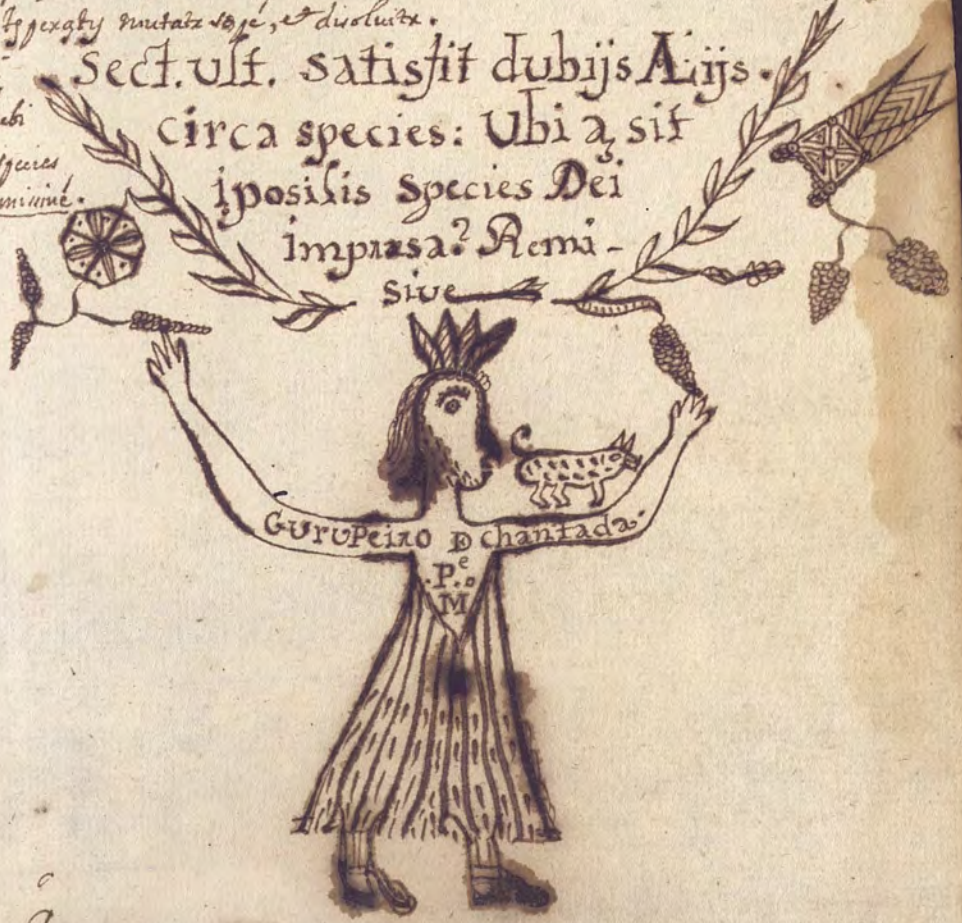 mutatr sepé, et disoluitr.
Sect. ult. satisfit dubijs Alijs.
circa species: Ubi a sit
iposilis species Dei
impressa? Remi-
sive
ebi
species
Gurupeiro D chantada.
P.e
M